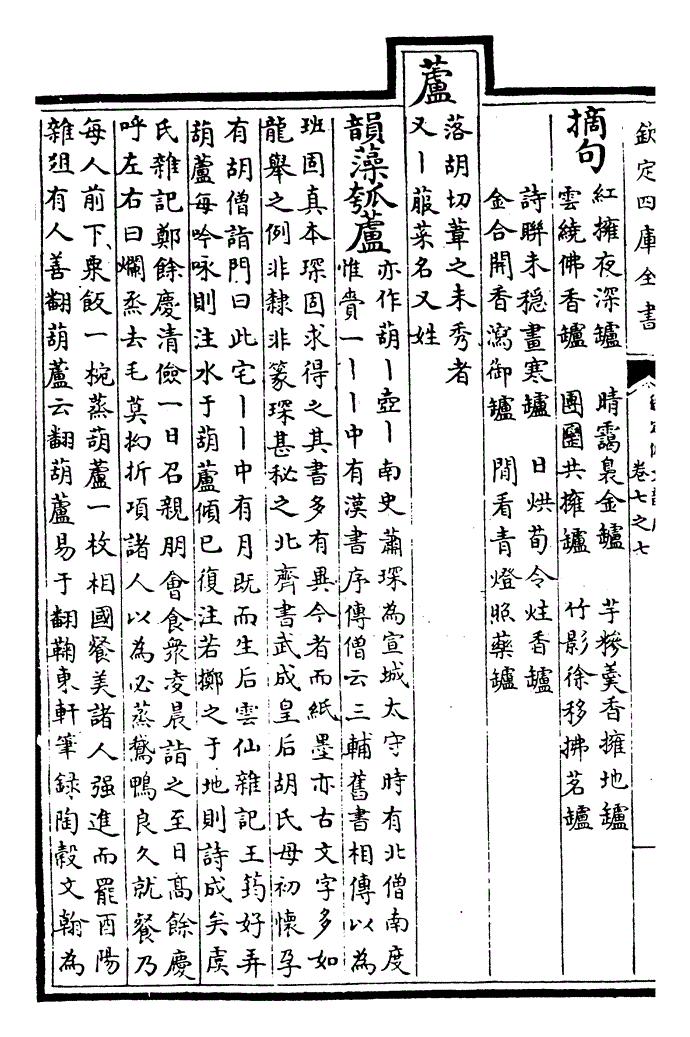 欽定四庫全書
卷七之七
摘句
紅擁夜深鑪 晴靄裊金鑪 芋糝羮香擁地鑪
雲繞佛香鑪 團圞共擁鑪 竹影徐移拂茗鑪
詩聯未穩畫寒鑪 日烘荀令炷香鑪
金合開香瀉御鑪 閒看青燈照藥鑪
蘆
落胡切葦之未秀者
又丨菔菜名又姓
韻藻瓠蘆
亦作葫丨壺丨南史蕭琛為宣城太守時有北僧南度
惟貴一丨丨丨中有漢書序傳僧云三輔舊書相傳以為
班固真本琛固求得之其書多有異今者而紙墨亦古文字多如
龍舉之例非隸非篆琛甚秘之北齊書武成皇后胡氏母初懷孕
有胡僧詣門曰此宅丨丨中有月既而生后雲仙雜記王筠好弄
葫蘆每吟咏則注水于葫蘆傾已復注若擲之于地則詩成矣虞
氏雜記鄭餘慶清儉一日召親朋會食衆凌晨詣之至日髙餘慶
呼左右曰爛烝去毛莫拗折項諸人以為必蒸鵞鴨良久就餐乃
每人前下粟飯一椀蒸葫蘆一枚相國餐美諸人强進而罷酉陽
雜俎有人善翻葫蘆云翻葫蘆易于翻鞠東軒筆録陶穀文翰為